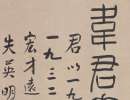 韋君
君以一九
一九三二
宏才遠
失英明